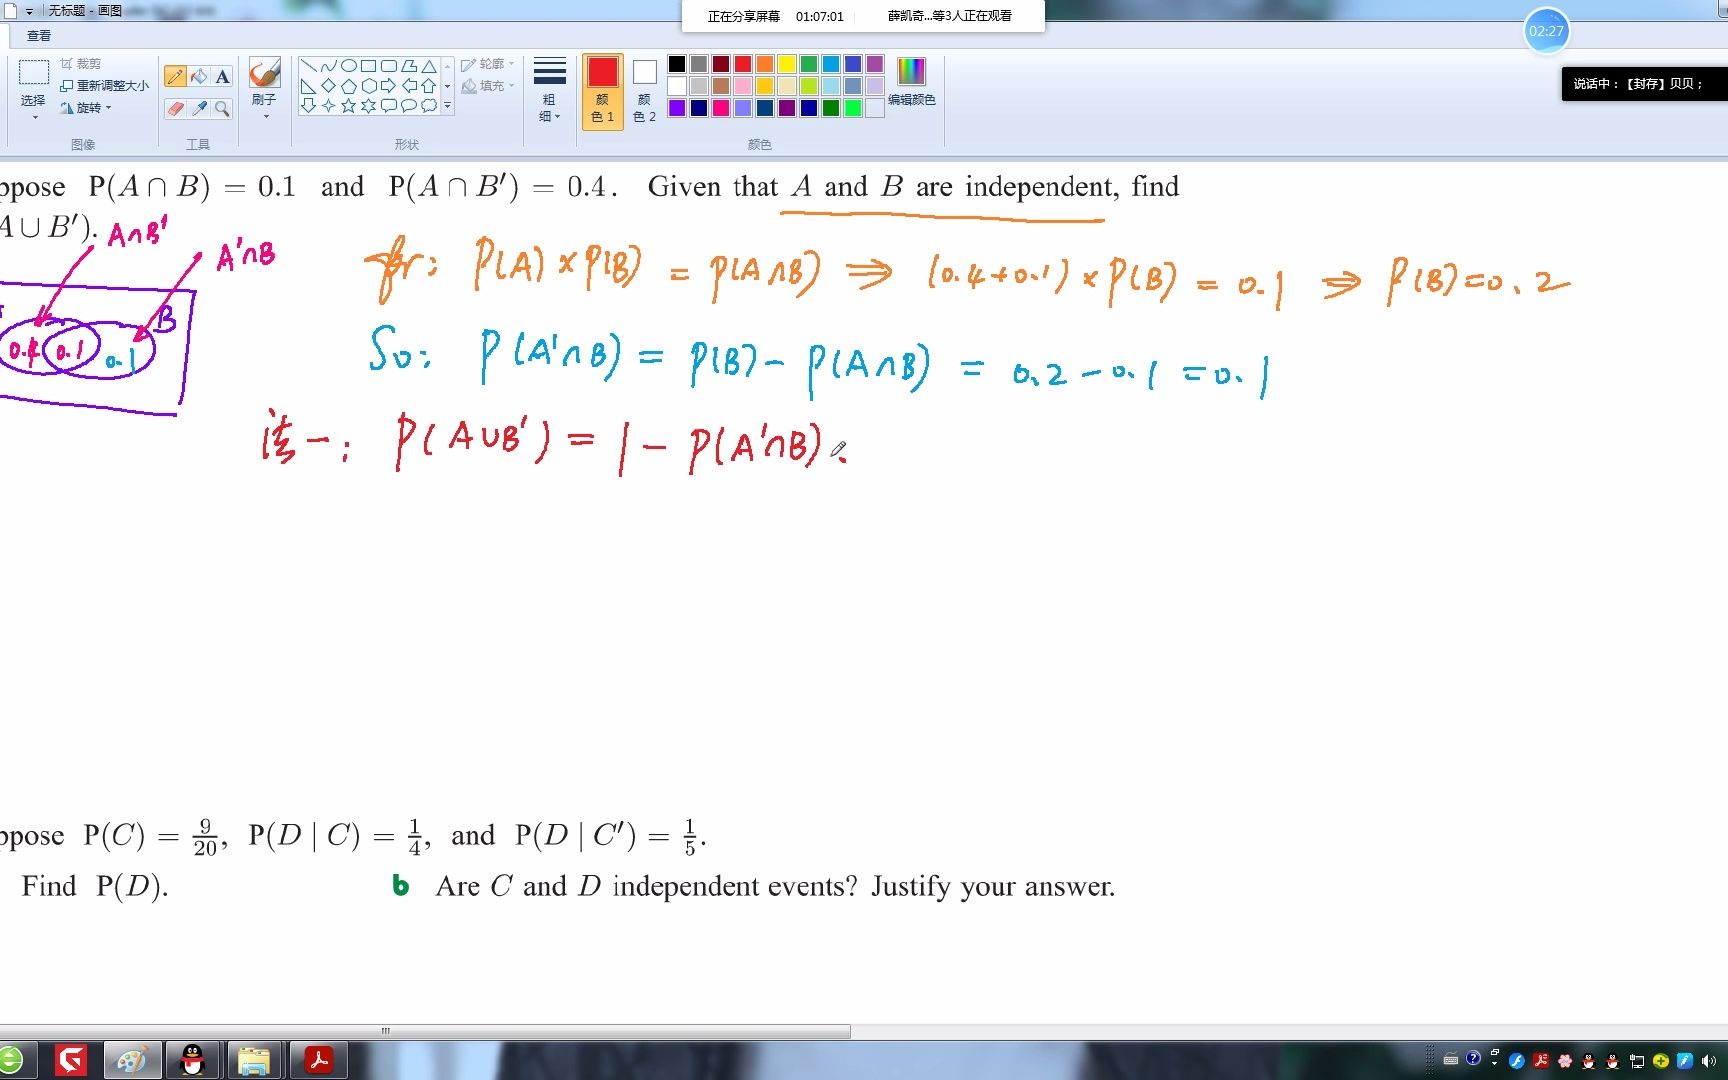 无标题 - 画图
正在分享屏幕 01:07:01 薛凯奇...等3人正在观看
02:27
查看
说话中：【封存】贝贝；
选择
裁剪
重新调整大小
旋转
A
刷子
轮廓
填充
粗
细
颜
色 1
颜
色 2
编辑颜色
图像
工具
形状
颜色
ppose P(A ∩ B) = 0.1 and P(A ∩ B′) = 0.4. Given that A and B are independent, find
A ∪ B′).
A∩B′
A′∩B
P(A) × P(B) = P(A∩B) ⇒ (0.4+0.1) × P(B) = 0.1 ⇒ P(B)=0.2
B
0.4 0.1 0.1
So: P(A′∩B) = P(B) − P(A∩B) = 0.2 − 0.1 = 0.1
法一: P(A∪B′) = 1 − P(A′∩B)
ppose P(C) = 9/20, P(D | C) = 1/4, and P(D | C′) = 1/5.
Find P(D). b Are C and D independent events? Justify your answer.